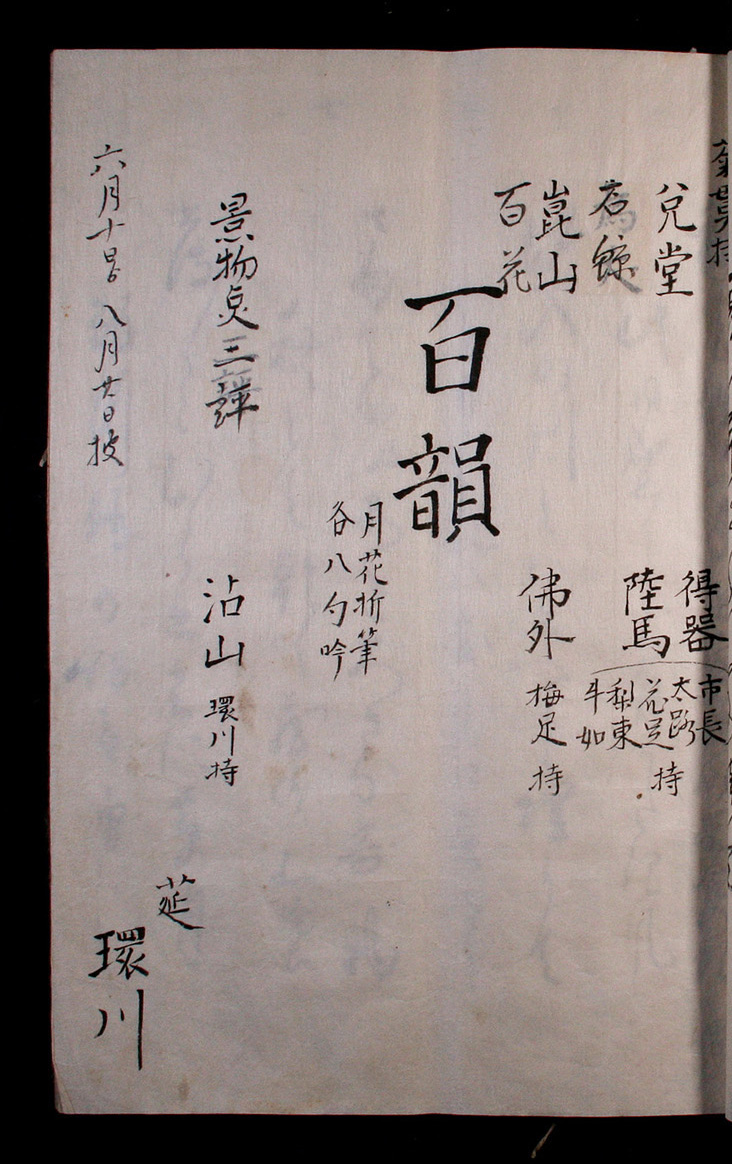 兌堂
石鯨
崑山
百花
得器
陸馬
市長
太路
花足
梨東
斗如
持
佛外
梅足 持
百韻
月花折筆
各八句吟
景物点三評
沾山 環川持
六月十日 八月廿日披
莚
環川